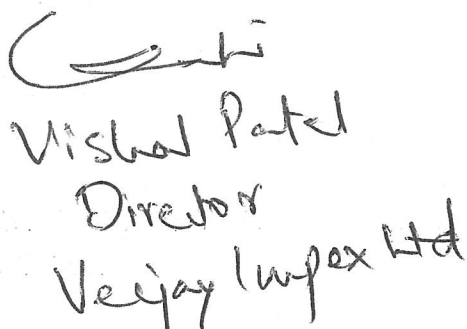 Vishal Patel
Director
Veejay Impex Ltd